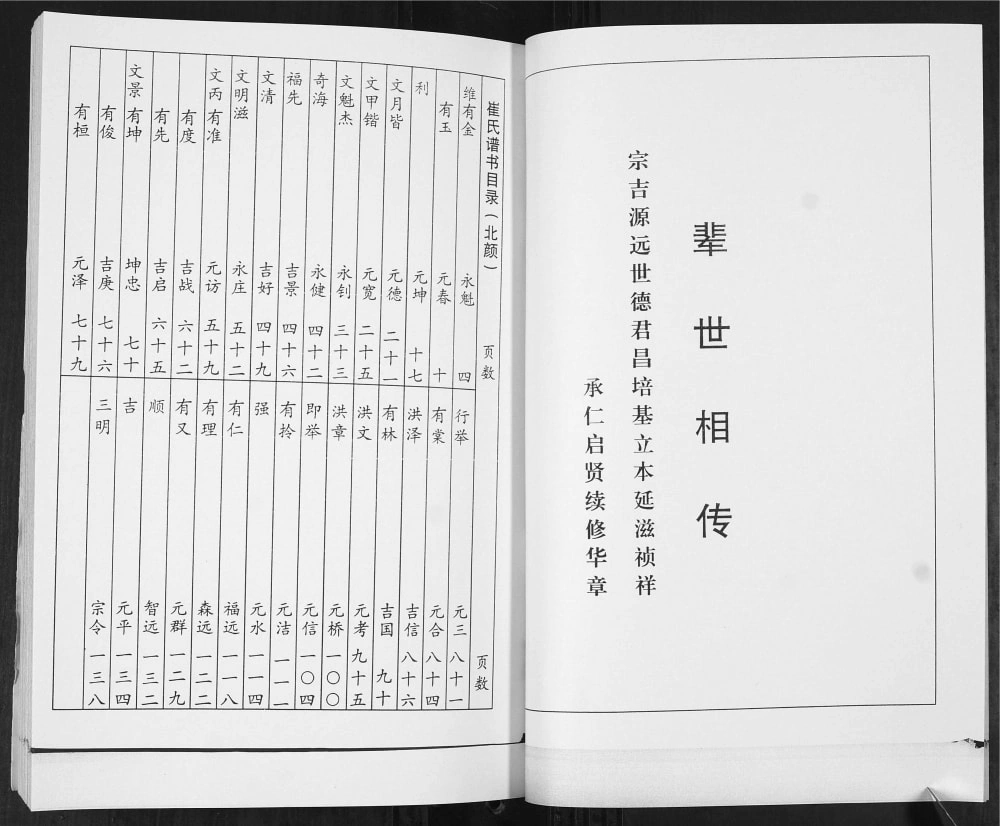 辈世相传
宗吉源远世德君昌培基立本延滋祯祥
承仁启贤续修华章
崔氏谱书目录(北颜) 页数 页数
维有金 永魁 四
有玉 元春 十
利 元坤 十七
文月皆 元德 二十一
文甲锴 元宽 二十五
文魁杰 永钊 三十三
奇海 永健 四十二
福先 吉景 四十六
文清 吉好 四十九
文明滋 永庄 五十二
文丙有准 元访 五十九
有度 吉战 六十二
有先 吉启 六十五
文景有坤 坤忠 七十
有俊 吉庚 七十六
有桓 元泽 七十九
行举 元三 八十一
有棠 元合 八十四
洪泽 吉信 八十六
有林 吉国 九十
洪文 元考 九十五
洪章 元桥 一〇〇
即举 元信 一〇四
有拎 元洁 一一一
强 元水 一一四
有仁 福远 一一八
有理 森远 一二二
有又 元群 一二九
顺 智远 一三二
吉 元平 一三四
三明 宗令 一三八